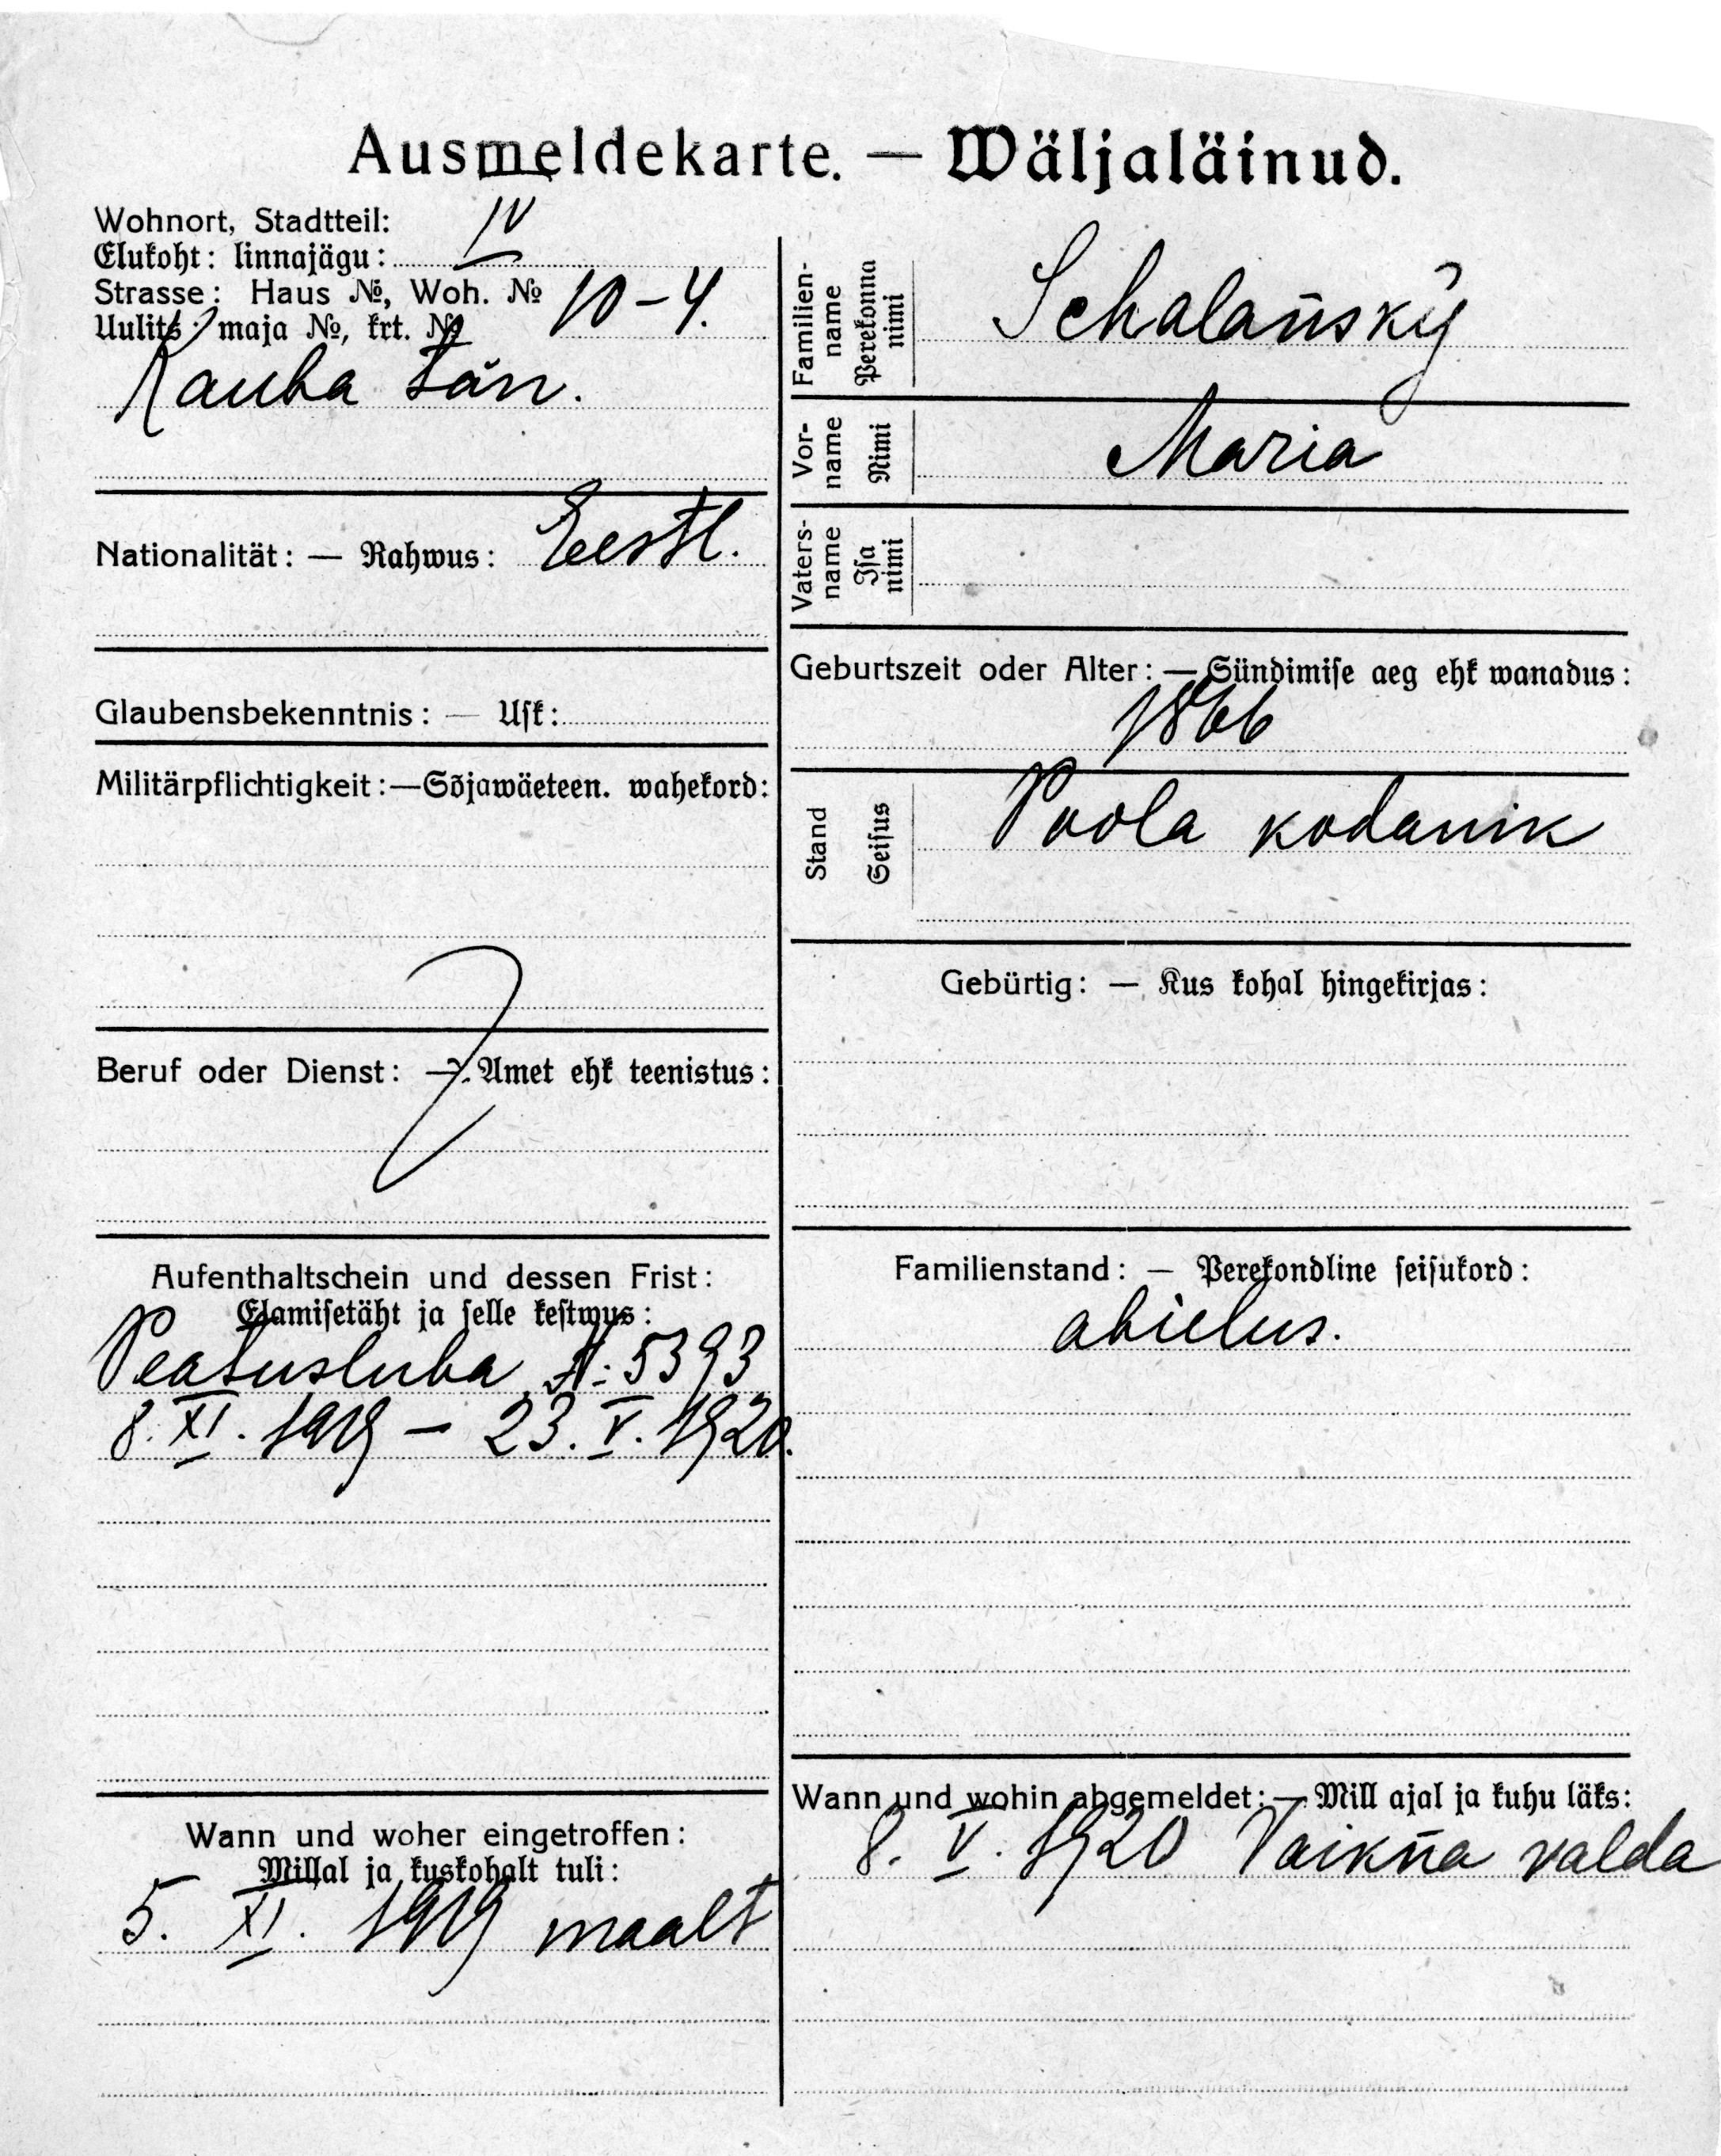 Ausmeldekarte. — Wäljaläinud.
Wohnort, Stadtteil:
Elukoht: linnajägu: IV
Strasse: Haus №, Woh. №
Uulits: maja №, krt. № 10-4.
Kauba tän.
Nationalität: — Rahwus: Eestl.
Glaubensbekenntnis: — Usk:
Militärpflichtigkeit: — Sõjawäeteen. wahekord:
Beruf oder Dienst: — Amet ehk teenistus:
Aufenthaltschein und dessen Frist:
Elamisetäht ja selle kestwus:
Peatusluba №: 5393
8. XI. 1919 – 23. V. 1920.
Wann und woher eingetroffen:
Millal ja kuskohalt tuli:
5. XI. 1919 maalt
Familien-
name
Perekonna
nimi
Schalansky
Vor-
name
Nimi
Maria
Vaters-
name
Isa
nimi
Geburtszeit oder Alter: — Sündimise aeg ehk wanadus:
1866
Stand
Seisus
Poola kodanik
Gebürtig: — Kus kohal hingekirjas:
Familienstand: — Perekondline seisukord:
abielus.
Wann und wohin abgemeldet: — Mill ajal ja kuhu läks:
8. V. 1920 valda